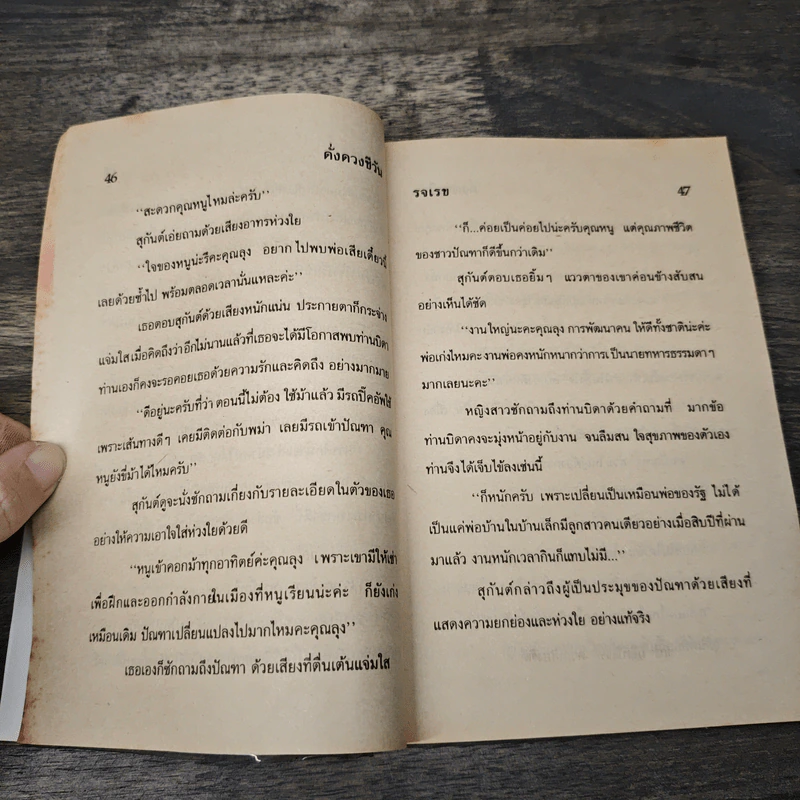 46
ดั่งดวงชีวัน
“สะดวกคุณหนูไหมล่ะครับ”
สุกันต์เอ่ยถามด้วยเสียงอาทรห่วงใย
“ใจของหนูน่ะรึคะคุณลุง อยากไปพบพ่อเสียเดี๋ยวนี้
เลยด้วยซ้ำไป พร้อมตลอดเวลานั่นแหละค่ะ”
เธอตอบสุกันต์ด้วยเสียงหนักแน่น ประกายตาก็กระจ่าง
แจ่มใส เมื่อคิดถึงว่าอีกไม่นานแล้วที่เธอจะได้มีโอกาสพบท่านบิดา
ท่านเองก็คงจะรอคอยเธอด้วยความรักและคิดถึง อย่างมากมาย
“ดีอยู่นะครับที่ว่า ตอนนี้ไม่ต้อง ใช้ม้าแล้ว มีรถปิ๊คอัพใช้
เพราะเส้นทางดีๆ เคยมีติดต่อกับพม่า เลยมีรถเข้าปัณฑา คุณ
หนูยังขี่ม้าได้ไหมครับ”
สุกันต์ดูจะนั่งซักถามเกี่ยงกับรายละเอียดในตัวของเธอ
อย่างให้ความเอาใจใส่ห่วงใยด้วยดี
“หนูเข้าคอกม้าทุกอาทิตย์ค่ะคุณลุง เพราะเขามีให้เช่า
เพื่อฝึกและออกกำลังกายในเมืองที่หนูเรียนน่ะค่ะ ก็ยังเก่ง
เหมือนเดิม ปัณฑาเปลี่ยนแปลงไปมากไหมคะคุณลุง”
เธอเองก็ซักถามถึงปัณฑา ด้วยเสียงที่ตื่นเต้นแจ่มใส
รจเรข
47
“ก็...ค่อยเป็นค่อยไปน่ะครับคุณหนู แต่คุณภาพชีวิต
ของชาวปัณฑาก็ดีขึ้นกว่าเดิม”
สุกันต์ตอบเธอยิ้มๆ แววตาของเขาค่อนข้างสับสน
อย่างเห็นได้ชัด
“งานใหญ่นะคะคุณลุง การพัฒนาคน ให้ดีทั้งชาติน่ะค่ะ
พ่อเก่งไหมคะ งานพ่อคงหนักหนากว่าการเป็นนายทหารธรรมดาๆ
มากเลยนะคะ”
หญิงสาวซักถามถึงท่านบิดาด้วยคำถามที่ มากข้อ
ท่านบิดาคงจะมุ่งหน้าอยู่กับงาน จนลืมสนใจสุขภาพของตัวเอง
ท่านจึงได้เจ็บไข้ลงเช่นนี้
“ก็หนักครับ เพราะเปลี่ยนเป็นเหมือนพ่อของรัฐ ไม่ได้
เป็นแค่พ่อบ้านในบ้านเล็กมีลูกสาวคนเดียวอย่างเมื่อสิบปีที่ผ่าน
มาแล้ว งานหนักเวลากินก็แทบไม่มี...”
สุกันต์กล่าวถึงผู้เป็นประมุขของปัณฑาด้วยเสียงที่
แสดงความยกย่องและห่วงใย อย่างแท้จริง